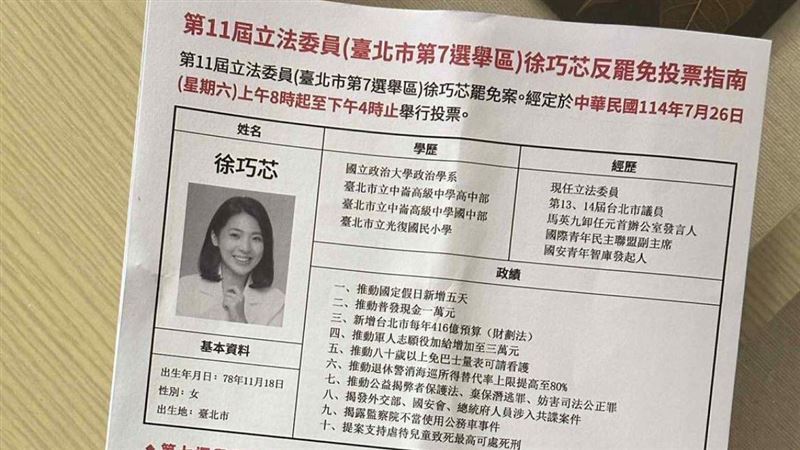 第11屆立法委員(臺北市第7選舉區)徐巧芯反罷免投票指南
第11屆立法委員(臺北市第7選舉區)徐巧芯罷免案。經定於中華民國114年7月26日
(星期六)上午8時起至下午4時止舉行投票。
姓名
徐巧芯
基本資料
出生年月日：78年11月18日
性別：女
出生地：臺北市
學歷
國立政治大學政治學系
臺北市立中崙高級中學高中部
臺北市立中崙高級中學國中部
臺北市立光復國民小學
經歷
現任立法委員
第13、14屆台北市議員
馬英九卸任元首辦公室發言人
國際青年民主聯盟副主席
國安青年智庫發起人
政績
一、推動國定假日新增五天
二、推動普發現金一萬元
三、新增台北市每年416億預算（財劃法）
四、推動軍人志願役加給增加至三萬元
五、推動八十歲以上免巴士量表可請看護
六、推動退休警消海巡所得替代率上限提高至80%
七、推動公益揭弊者保護法、棄保潛逃罪、妨害司法公正罪
八、揭發外交部、國安會、總統府人員涉入共諜案件
九、揭露監察院不當使用公務車事件
十、提案支持虐待兒童致死最高可處死刑